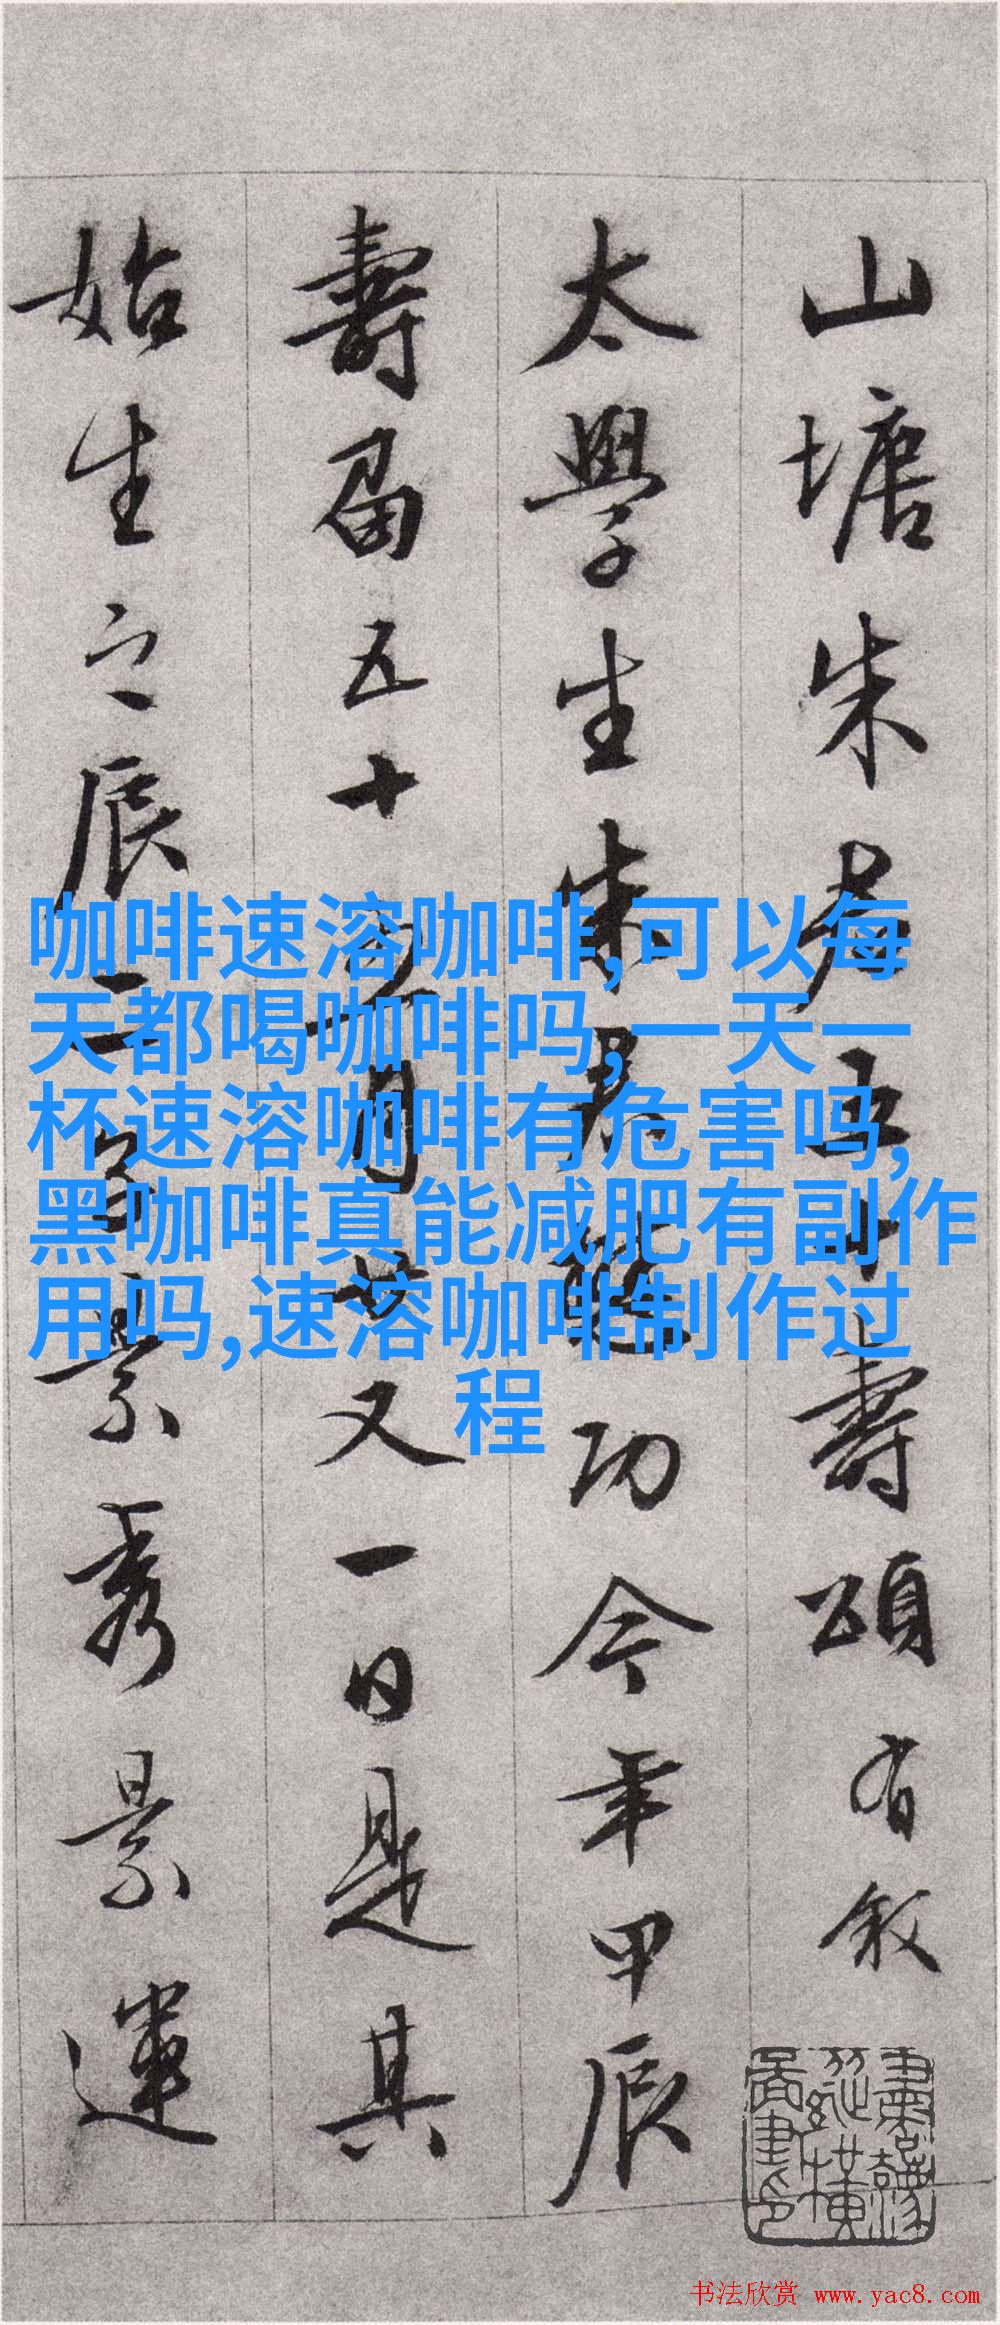 山塘朱君五十壽頌有敘
太學生朱君懋功今年甲辰
壽届五十五月廿又一日是其
始生之辰二字景秀景運
咖啡速溶咖啡,可以每
天都喝咖啡吗,一天一
杯速溶咖啡有危害吗,
黑咖啡真能减肥有副作
用吗,速溶咖啡制作过
程
书法欣赏 www.yac8.com